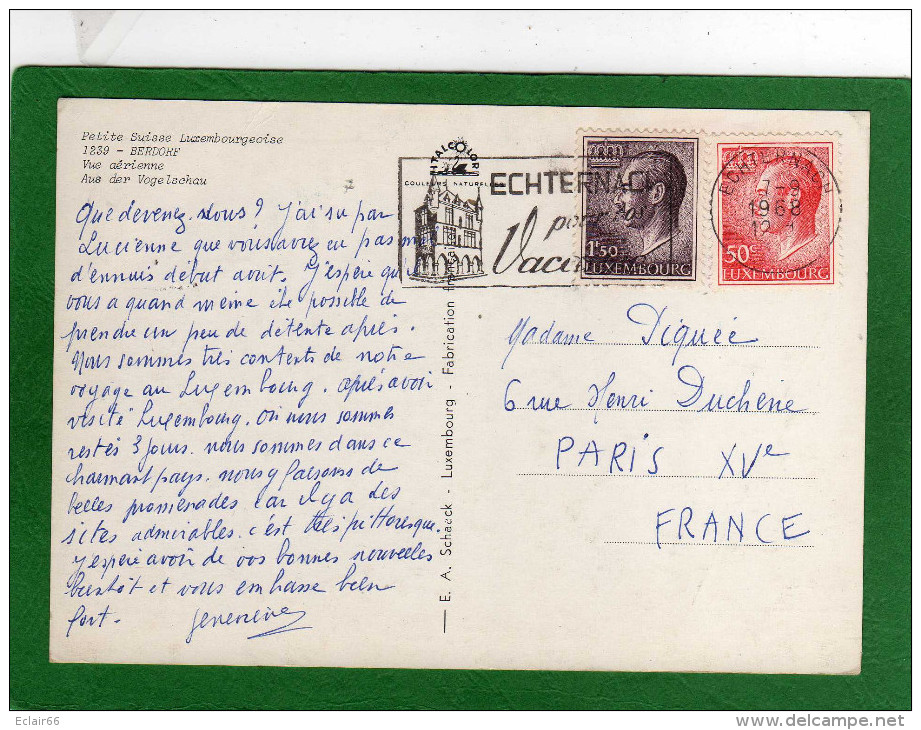 Petite Suisse Luxembourgeoise
1239 - BERDORF
Vue aérienne
Aus der Vogelschau
Que devenez-vous ? J'ai su par
Lucienne que vous aviez eu pas mal
d'ennuis début août. J'espère qu'il
vous a quand même été possible de
prendre un peu de détente après.
Nous sommes très contents de notre
voyage au Luxembourg. après avoir
visité Luxembourg. où nous sommes
restés 3 jours. nous sommes dans ce
charmant pays. nous y faisons de
belles promenades car il y a des
sites admirables. c'est très pittoresque.
J'espère avoir de vos bonnes nouvelles
bientôt et vous embrasse bien
fort. Geneviève
— E. A. Schaack - Luxembourg - Fabrication française
ITALCOLOR
COULEURS NATURELLES
ECHTERNACH
pour vos
Vacances
1F50
LUXEMBOURG
50c
LUXEMBOURG
ECHTERNACH
1968
Madame Piquée
6 rue Henri Duchêne
PARIS XVe
FRANCE
Eclair66
www.delcampe.net